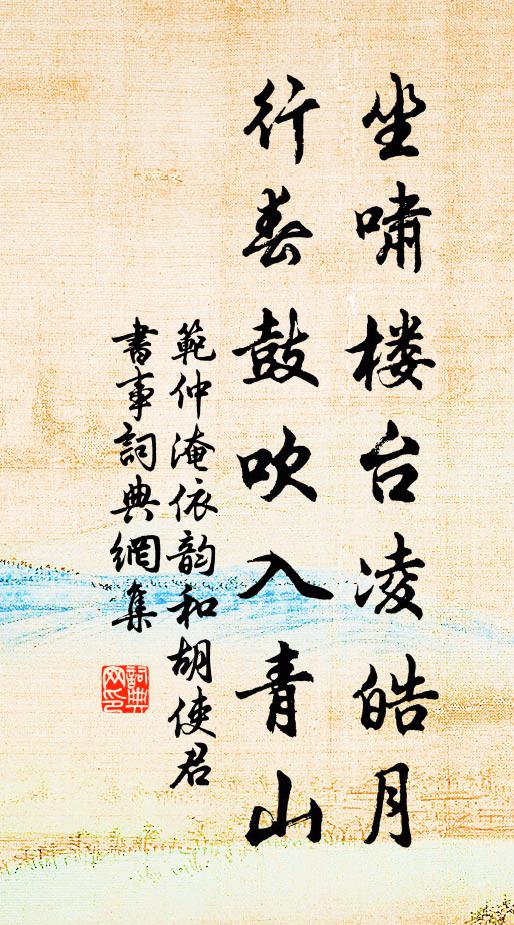 坐啸楼台凌皓月
行春鼓吹入青山
範仲淹依韵和胡使君
書事詞典網集
詞典
网印